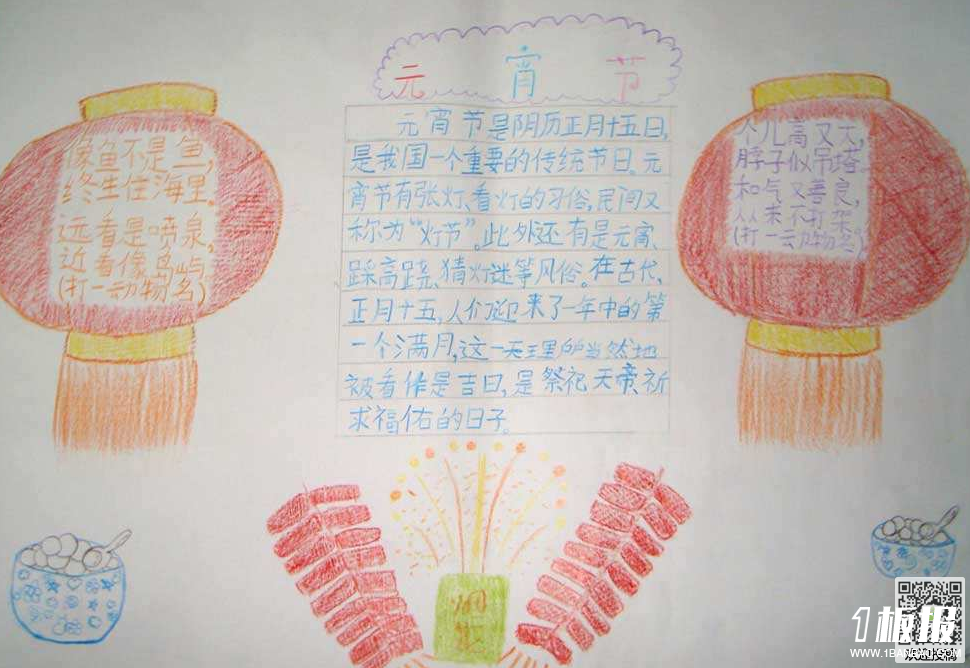 元 宵 节
元宵节是阴历正月十五日,
是我国一个重要的传统节日。元
宵节有张灯、看灯的习俗,民间又
称为“灯节”。此外还有是元宵、
踩高跷、猜灯谜等风俗。在古代,
正月十五,人们迎来了一年中的第
一个满月,这一天理所当然地
被看作是吉日,是祭祀天帝祈
求福佑的日子。
像鱼不是鱼,
终生住海里。
远看是喷泉,
近看像岛屿
(打一动物名)
个儿高又大,
脖子似吊塔。
和气又善良,
从来不打架。
(打一动物名。)
1板报
WWW.1BANBAO.COM